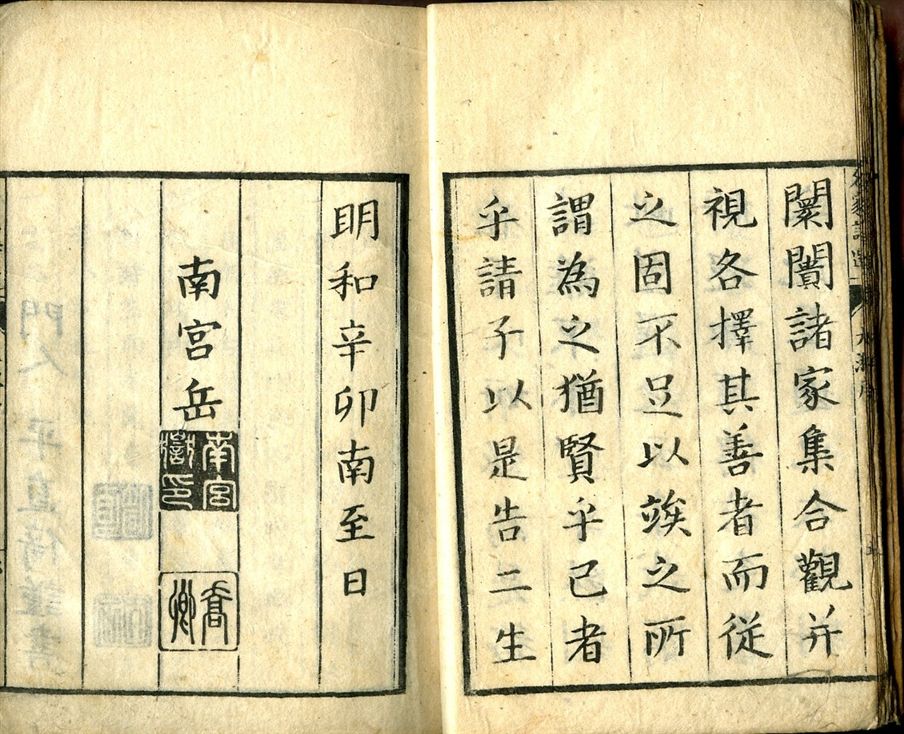 闤闠諸家集合觀并
視各擇其善者而從
之固不足以竢之所
謂為之猶賢乎已者
乎請子以是告二生
明和辛卯南至日
南宮岳
南宮嶽印
喬卿